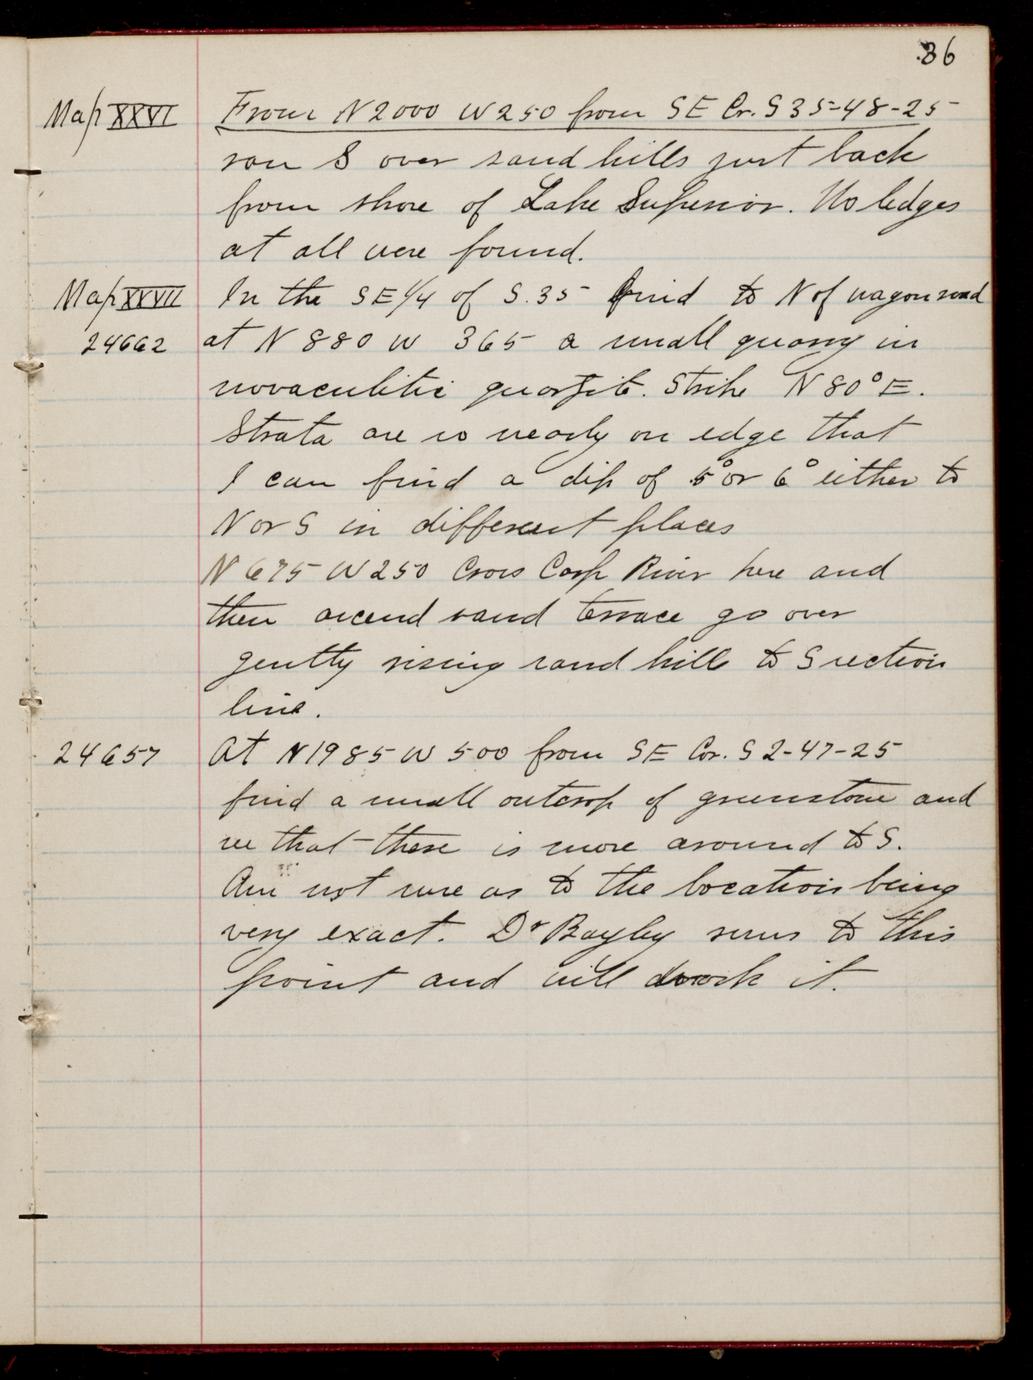 36
Map XXVI From N 2000 W 250 from SE Cr. S 35-48-25
ran S over sand hills just back
from shore of Lake Superior. No ledges
at all were found.
Map XXVII In the SE 1/4 of S. 35 find to N of wagon road
24662 at N 880 W 365 a small quarry in
novaculitic quartzite. Strike N 80° E.
Strata are so nearly on edge that
I can find a dip of 5° or 6° either to
N or S in different places
N 675 W 250 Cross Carp River here and
then ascend sand terrace go over
gently rising sand hills to S section
line.
24657 At N 1985 W 500 from SE Cor. S 2-47-25
find a small outcrop of greenstone and
see that there is more around to S.
Am not sure as to the location being
very exact. Dr Bayley runs to this
point and will work it.